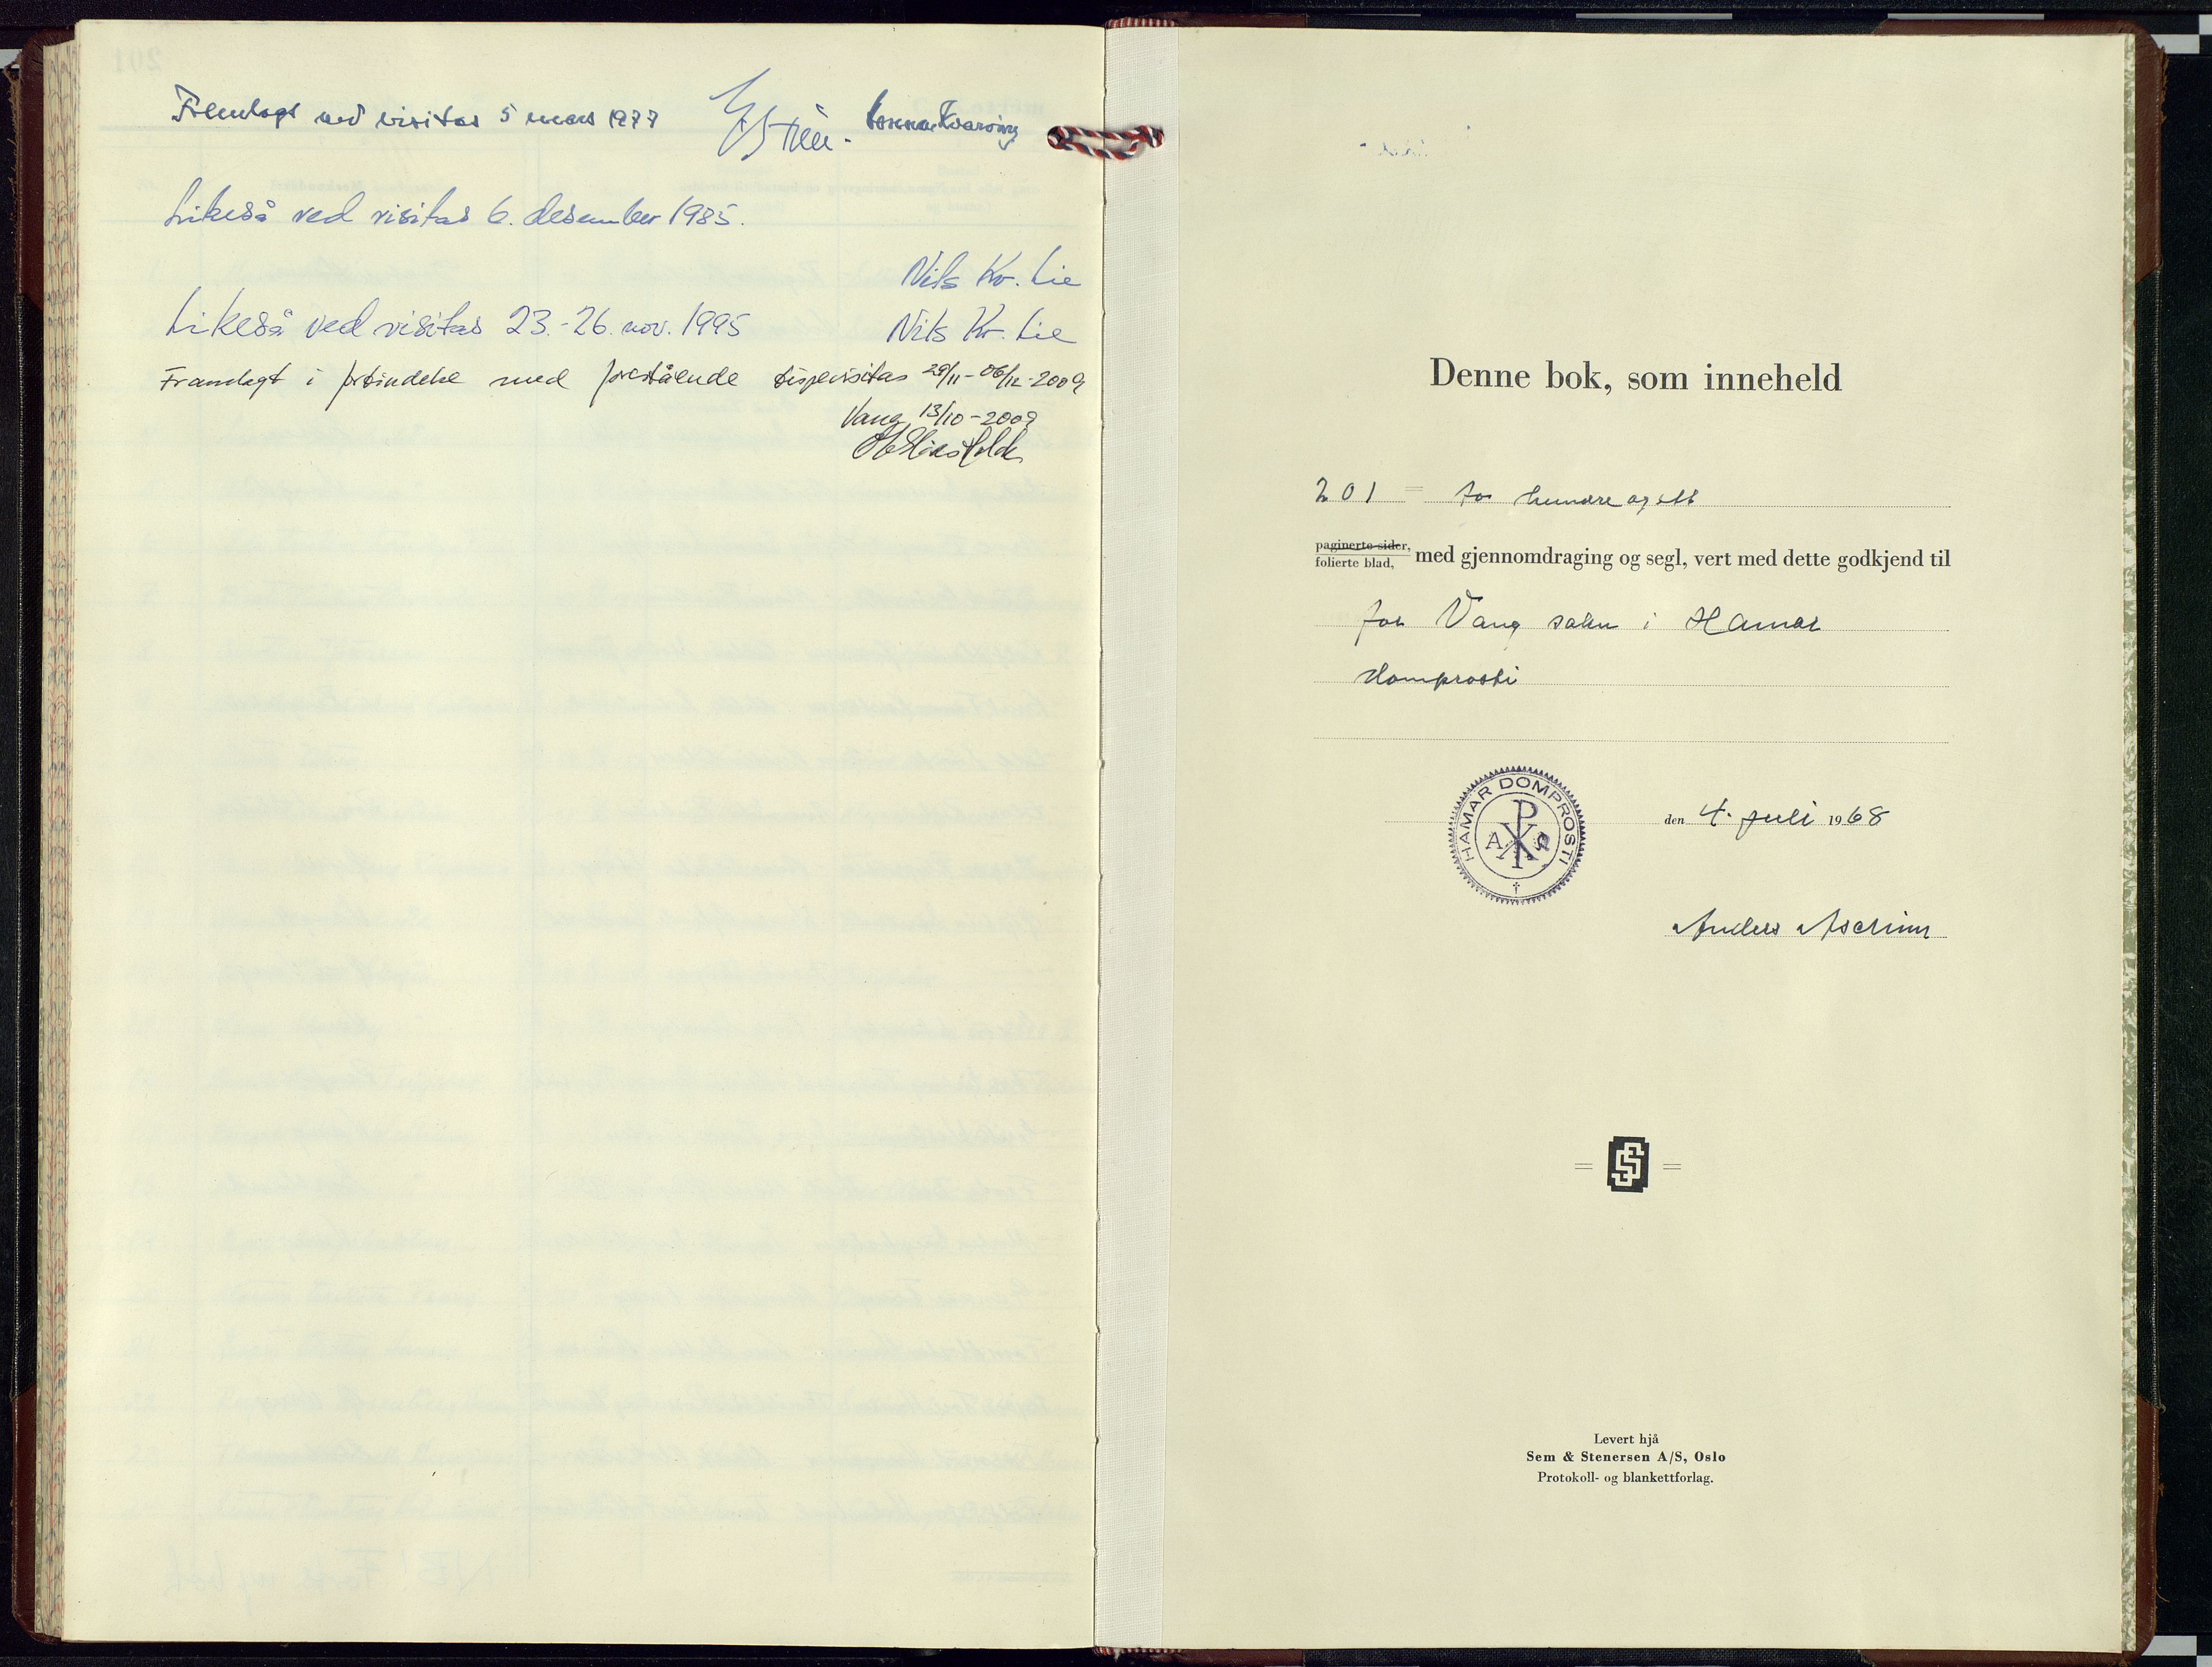 Fremlagt ved visitas 5 mars 1977
Likeså ved visitas 6. desember 1985.
Nils Kr. Lie
Likeså ved visitas 23.-26. nov. 1995 Nils Kr. Lie
Framlagt i forbindelse med forestående bispevisitas 29/11-06/12-2009
Vang 13/10-2009
Denne bok, som inneheld
201 = to hundre og ett
paginerte sider,
folierte blad, med gjennomdraging og segl, vert med dette godkjend til
for Vang sokn i Hamar
domprosti
HAMAR DOMPROSTI
Α Ω
den 4. juli 1968
Anders Aschim
Levert hjå
Sem & Stenersen A/S, Oslo
Protokoll- og blankettforlag.